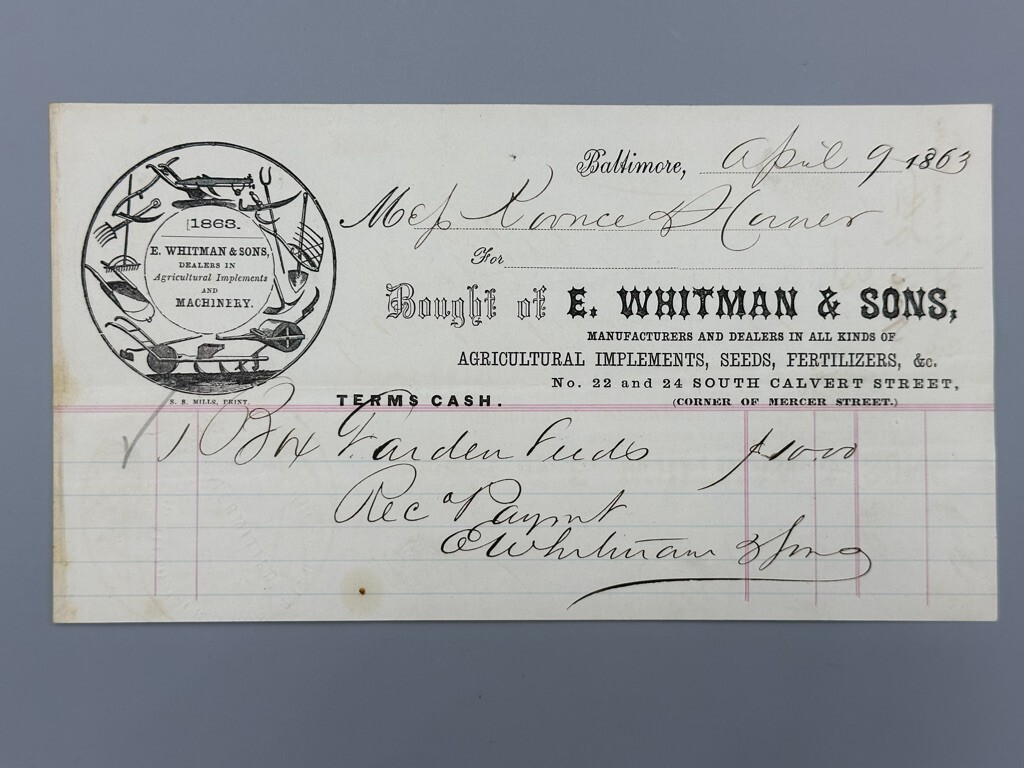 Baltimore, April 9 1863
Mess Koonce & Horner
For
Bought of E. WHITMAN & SONS,
MANUFACTURERS AND DEALERS IN ALL KINDS OF
AGRICULTURAL IMPLEMENTS, SEEDS, FERTILIZERS, &c.
No. 22 and 24 SOUTH CALVERT STREET,
TERMS CASH. (CORNER OF MERCER STREET.)
1863.
E. WHITMAN & SONS,
DEALERS IN
Agricultural Implements
AND
MACHINERY.
S. S. MILLS, PRINT.
1 Box Garden Seeds $10.00
Rec d Paymt
E Whitman & Sons